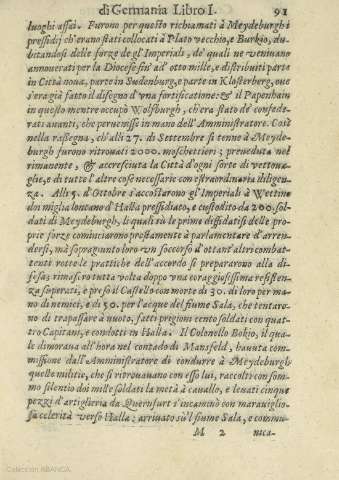 di Germania Libro I. 91
luoghi assai. Furono per questo richiamati à Meydeburgh i
pressidij ch'erano stati collocati à Plato vecchio, e Burkio, du-
bitandosi delle forze de gl'Imperiali, de' quali ne venivano
annouerati per la Diocese fin' ad' otto mille, e distribuiti parte
in Città noua, parte in Sudenburg, e parte in Klosterberg, oue
s'era già fatto il disegno d'vna fortificatione: & il Papenhain
in questo mentre occupò Wolfburgh, ch'era stato de' confede-
rati auanti, che peruenisse in mano dell'Amministratore. Così
nella rassegna, ch'alli 27. di Settembre si tenne à Meyde-
burgh furono ritrouati 2000. moschettieri; preueduta nel
rimanente, & accresciuta la Città d'ogni sorte di vettoua-
glie, e di tutte l'altre cose necessarie con estraordinaria diligen-
za. Alli 5. d'Ottobre s'accostarono gl'Imperiali à Wettino
doi miglia lontano d'Halla pressidiato, e custodito da 200. sol-
dati di Meydeburgh, li quali sù le prime diffidatisi delle pro-
prie forze cominciarono prestamente à parlamentare d'arren-
dersi, mà sopragiunto loro vn soccorso d'ottant'altri combat-
tenti rotte le prattiche dell'accordo si prepararono alla di-
fesa; rimasero tutta volta doppo vna coraggiosissima resisten-
za superati, e preso il Castello con morte di 30. di loro per ma-
no de nemici, e di 50. per l'acque del fiume Sala, che tentaro-
no di trapassare à nuoto, fatti pregioni cento soldati con quat-
tro Capitani, e condotti in Halla. Il Colonello Bokio, il qua-
le dimoraua all'hora nel contado di Mansfeld, hauuta com-
missione dall'Amministratore di condurre à Meydeburgh
quelle militie, che si ritrouauano con esso lui, raccolti con som-
mo silentio doi mille soldati la metà à cauallo, e leuati cinque
pezzi d'artiglieria da Quernfurt s'incaminò con marauiglio-
sa celerità verso Halla: arriuato sù'l fiume Sala, e comu-
M 2 nica-
Colección ABANCA